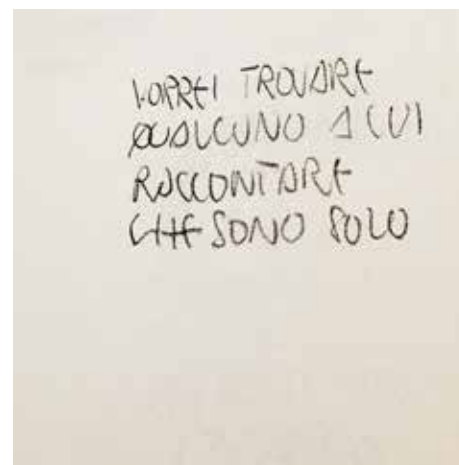 VORREI TROVARE
QUALCUNO A CUI
RACCONTARE
CHE SONO SOLO